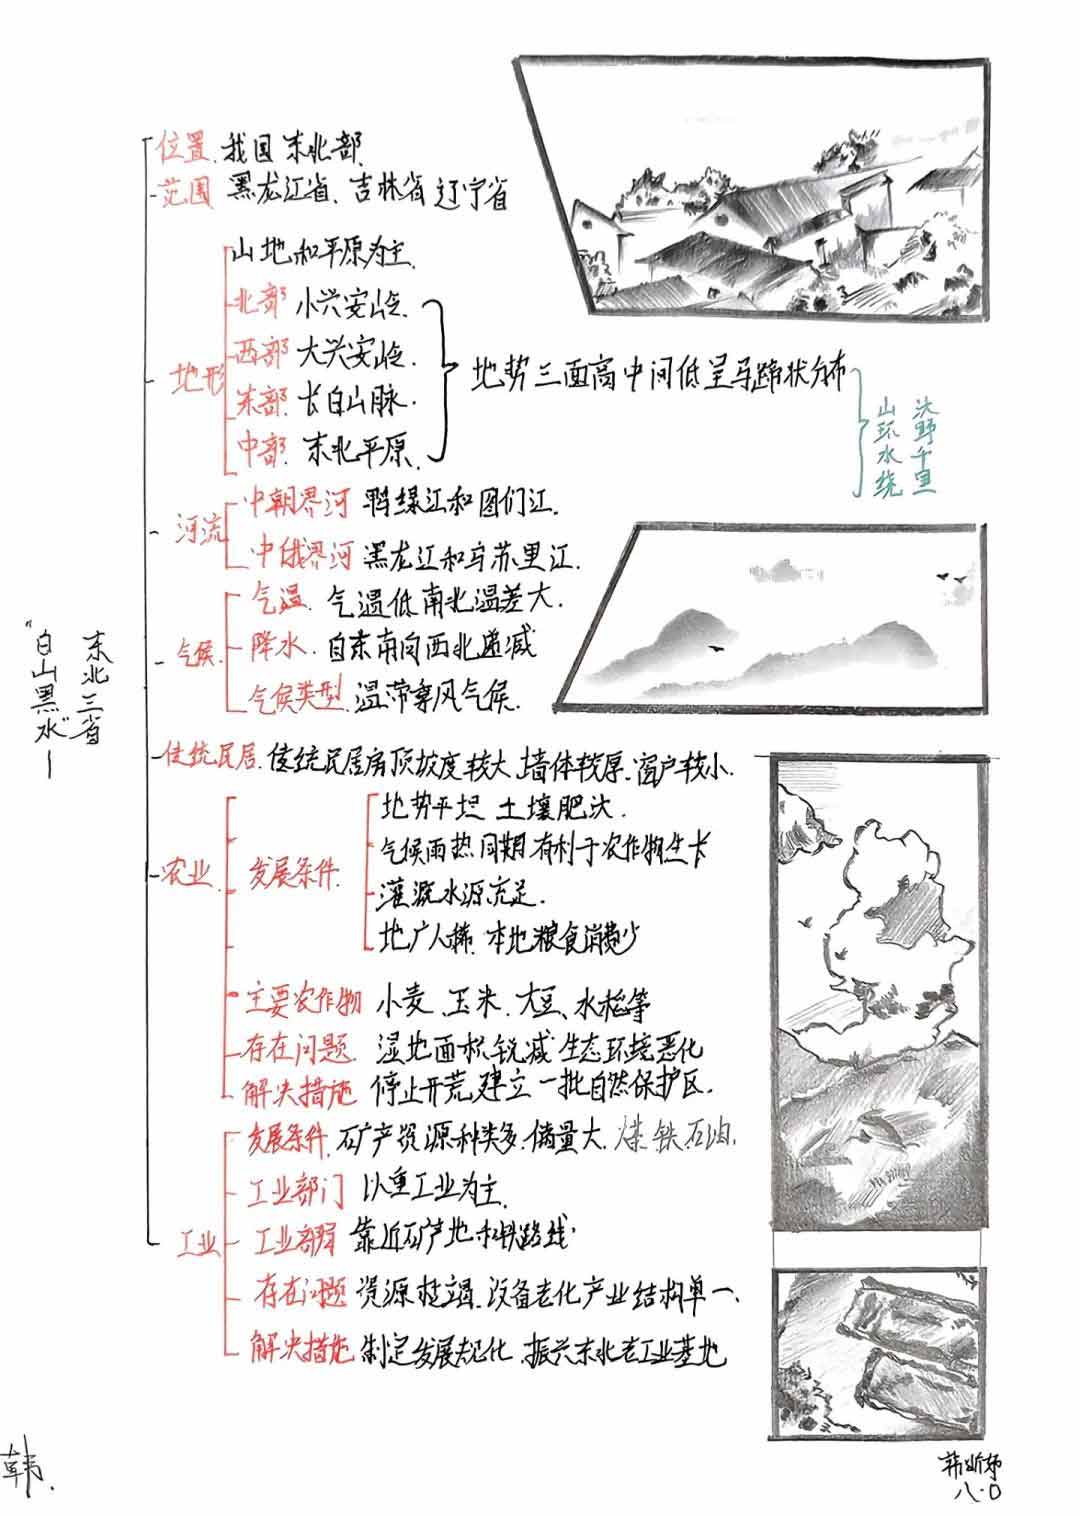 东北三省
"白山黑水"
位置 我国东北部
范围 黑龙江省、吉林省 辽宁省
地形
山地和平原为主
北部 小兴安岭
西部 大兴安岭
东部 长白山脉
中部 东北平原
地势三面高中间低呈马蹄状分布
山环水绕
沃野千里
河流
中朝界河 鸭绿江和图们江
中俄界河 黑龙江和乌苏里江
气候
气温 气温低南北温差大
降水 自东南向西北递减
气候类型 温带季风气候
传统民居 传统民居房顶坡度较大、墙体较厚、窗户较小
农业
发展条件
地势平坦 土壤肥沃
气候雨热同期有利于农作物生长
灌溉水源充足
地广人稀 本地粮食消费少
主要农作物 小麦、玉米、大豆、水稻等
存在问题 湿地面积锐减 生态环境恶化
解决措施 停止开荒,建立一批自然保护区
工业
发展条件 矿产资源种类多 储量大 煤 铁 石油
工业部门 以重工业为主
工业部 靠近矿产地和铁路线
存在问题 资源枯竭、设备老化 产业结构单一
解决措施 制定发展规化 振兴东北老工业基地
韩